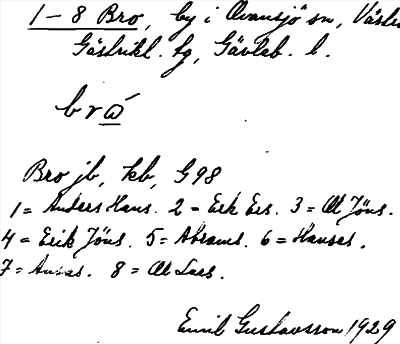 1-8 Bro, by i Ovansjö sn, Västra
Gästrikl. tg, Gävleb. l.
brώ̲
Bro jb, kb, G98
1 = Anders Hans. 2 = Erk Ers. 3 = Ol Jöns.
4 = Erik Jöns. 5 = Abrams. 6 = Hanses.
7 = 8 = Ol Lars.
Emil Gustavsson 1929